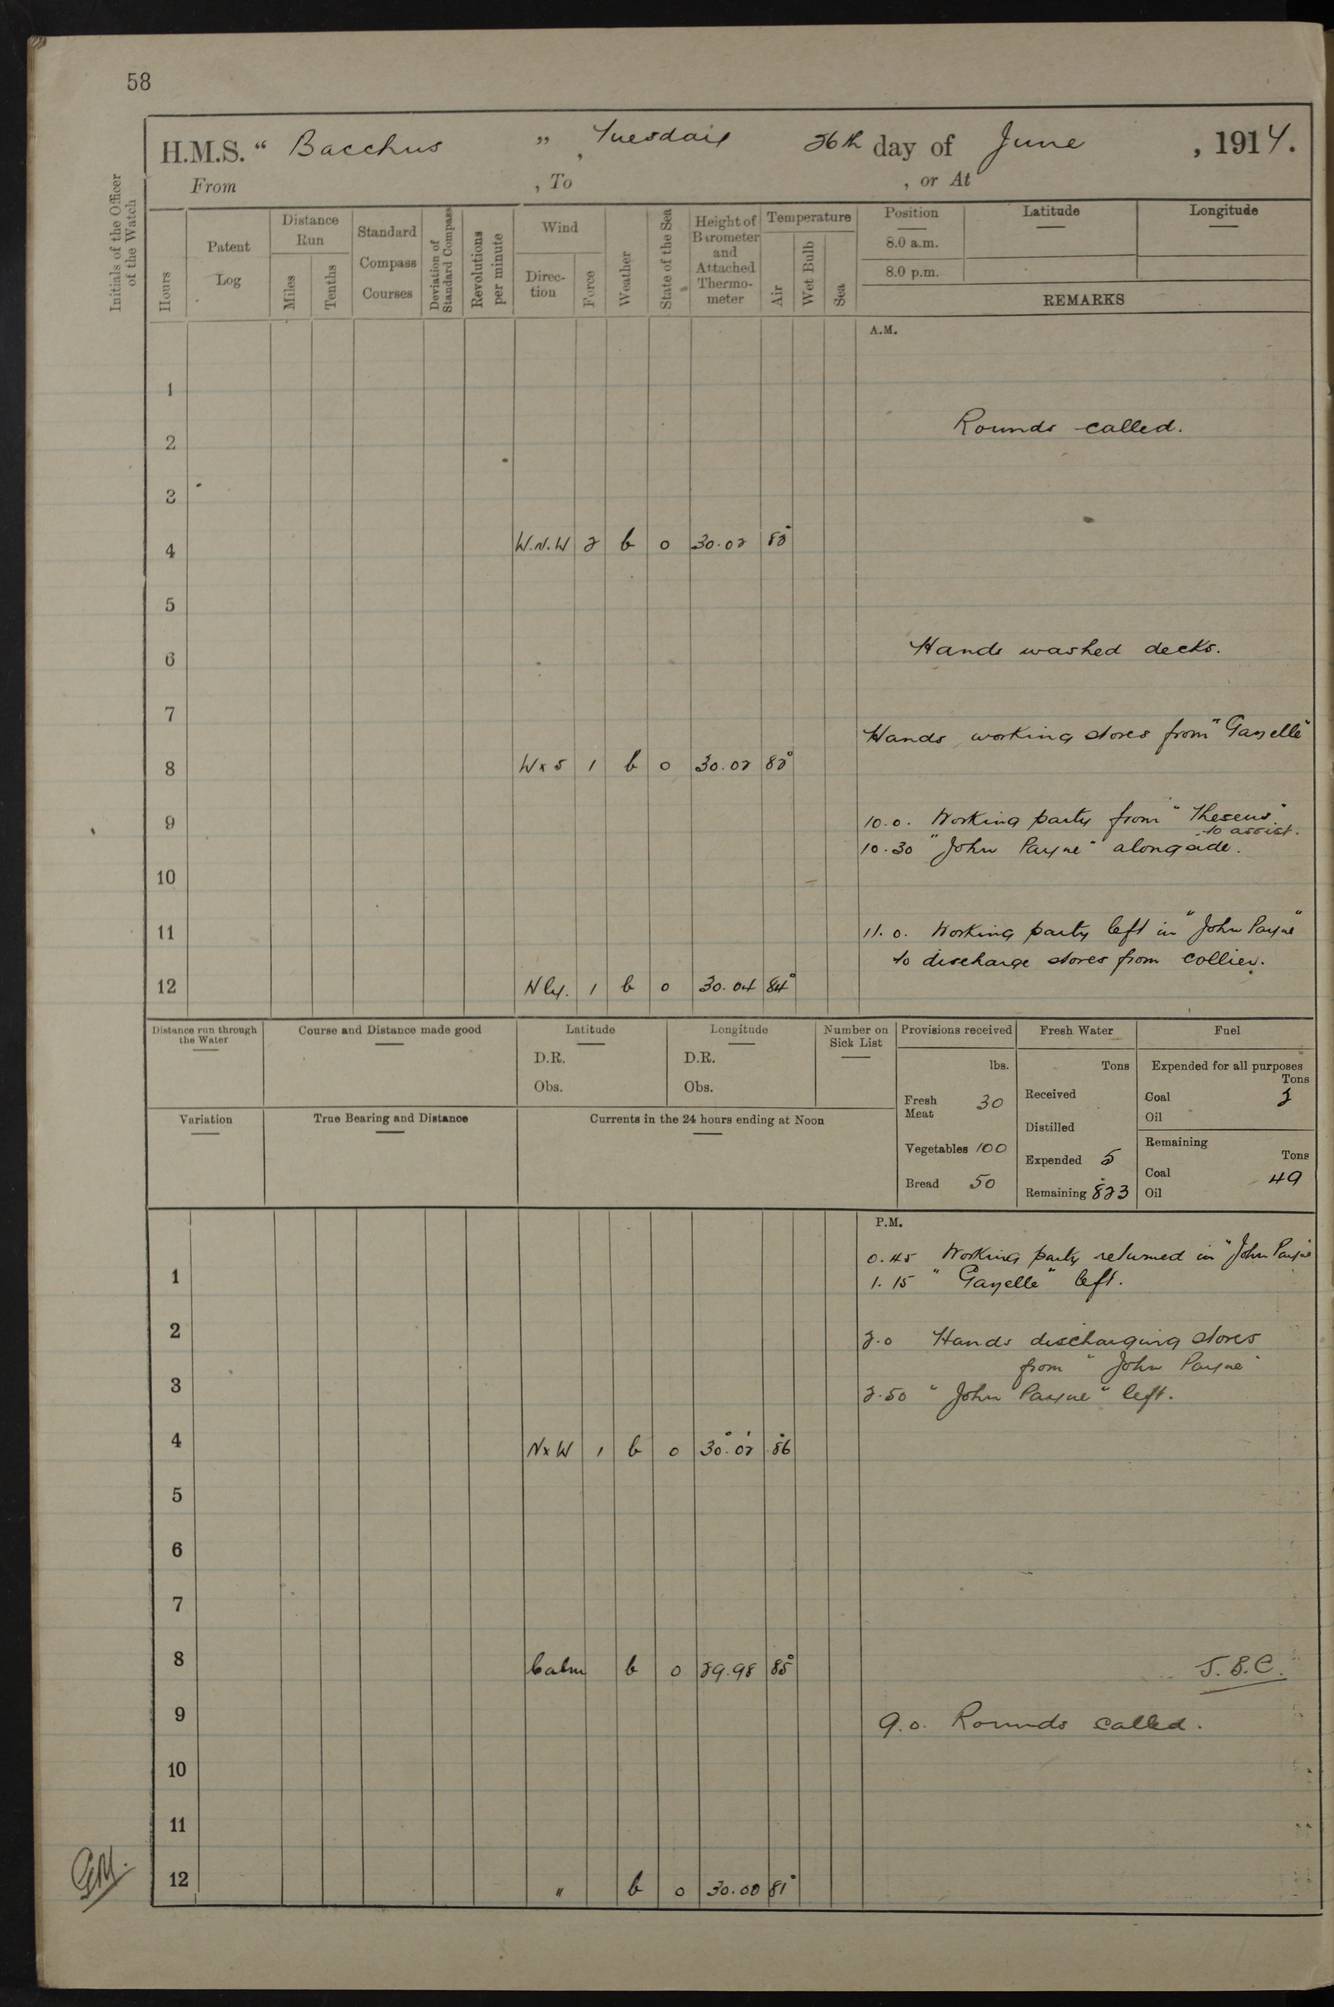 58
H.M.S. " Bacchus ", Tuesday 26th day of June, 1917.
From , To , or At
Initials of the Officer of the Watch
Hours
Patent Log
Distance Run
Miles
Tenths
Standard Compass Courses
Deviation of Standard Compass
Revolutions per minute
Wind
Direction
Force
Weather
State of the Sea
Height of Barometer and Attached Thermometer
Temperature
Air
Wet Bulb
Sea
Position
8.0 a.m.
8.0 p.m.
Latitude
Longitude
REMARKS
A.M.
1
Rounds called.
2
3
4 W.N.W 2 b 0 30.02
5
Hands washed decks.
6
7
Hands working stores from "Gazelle"
8 W x S 1 b 0 30.02 82°
9
10.0. Working party from "Theseus" to assist.
10.30 "John Payne" alongside.
10
11
11.0. Working party left in "John Payne"
to discharge stores from collier.
12 Nly. 1 b 0 30.04 84°
Distance run through the Water
Course and Distance made good
Latitude
D.R.
Obs.
Longitude
D.R.
Obs.
Number on Sick List
Provisions received
lbs.
Fresh Meat 30
Vegetables 100
Bread 50
Fresh Water
Tons
Received
Distilled
Expended 5
Remaining 823
Fuel
Expended for all purposes
Tons
Coal 2
Oil
Remaining
Tons
Coal 49
Oil
Variation
True Bearing and Distance
Currents in the 24 hours ending at Noon
P.M.
0.45 Working party returned in "John Payne"
1
1.15 "Gazelle" left.
2
2.0 Hands discharging stores
from "John Payne"
3
2.50 "John Payne" left.
4 N x W 1 b 0 30.02 86
5
6
7
8 Calm b 0 29.98 85°
J.B.C.
9
9.0. Rounds called.
10
11
12 " b 0 30.00 81°